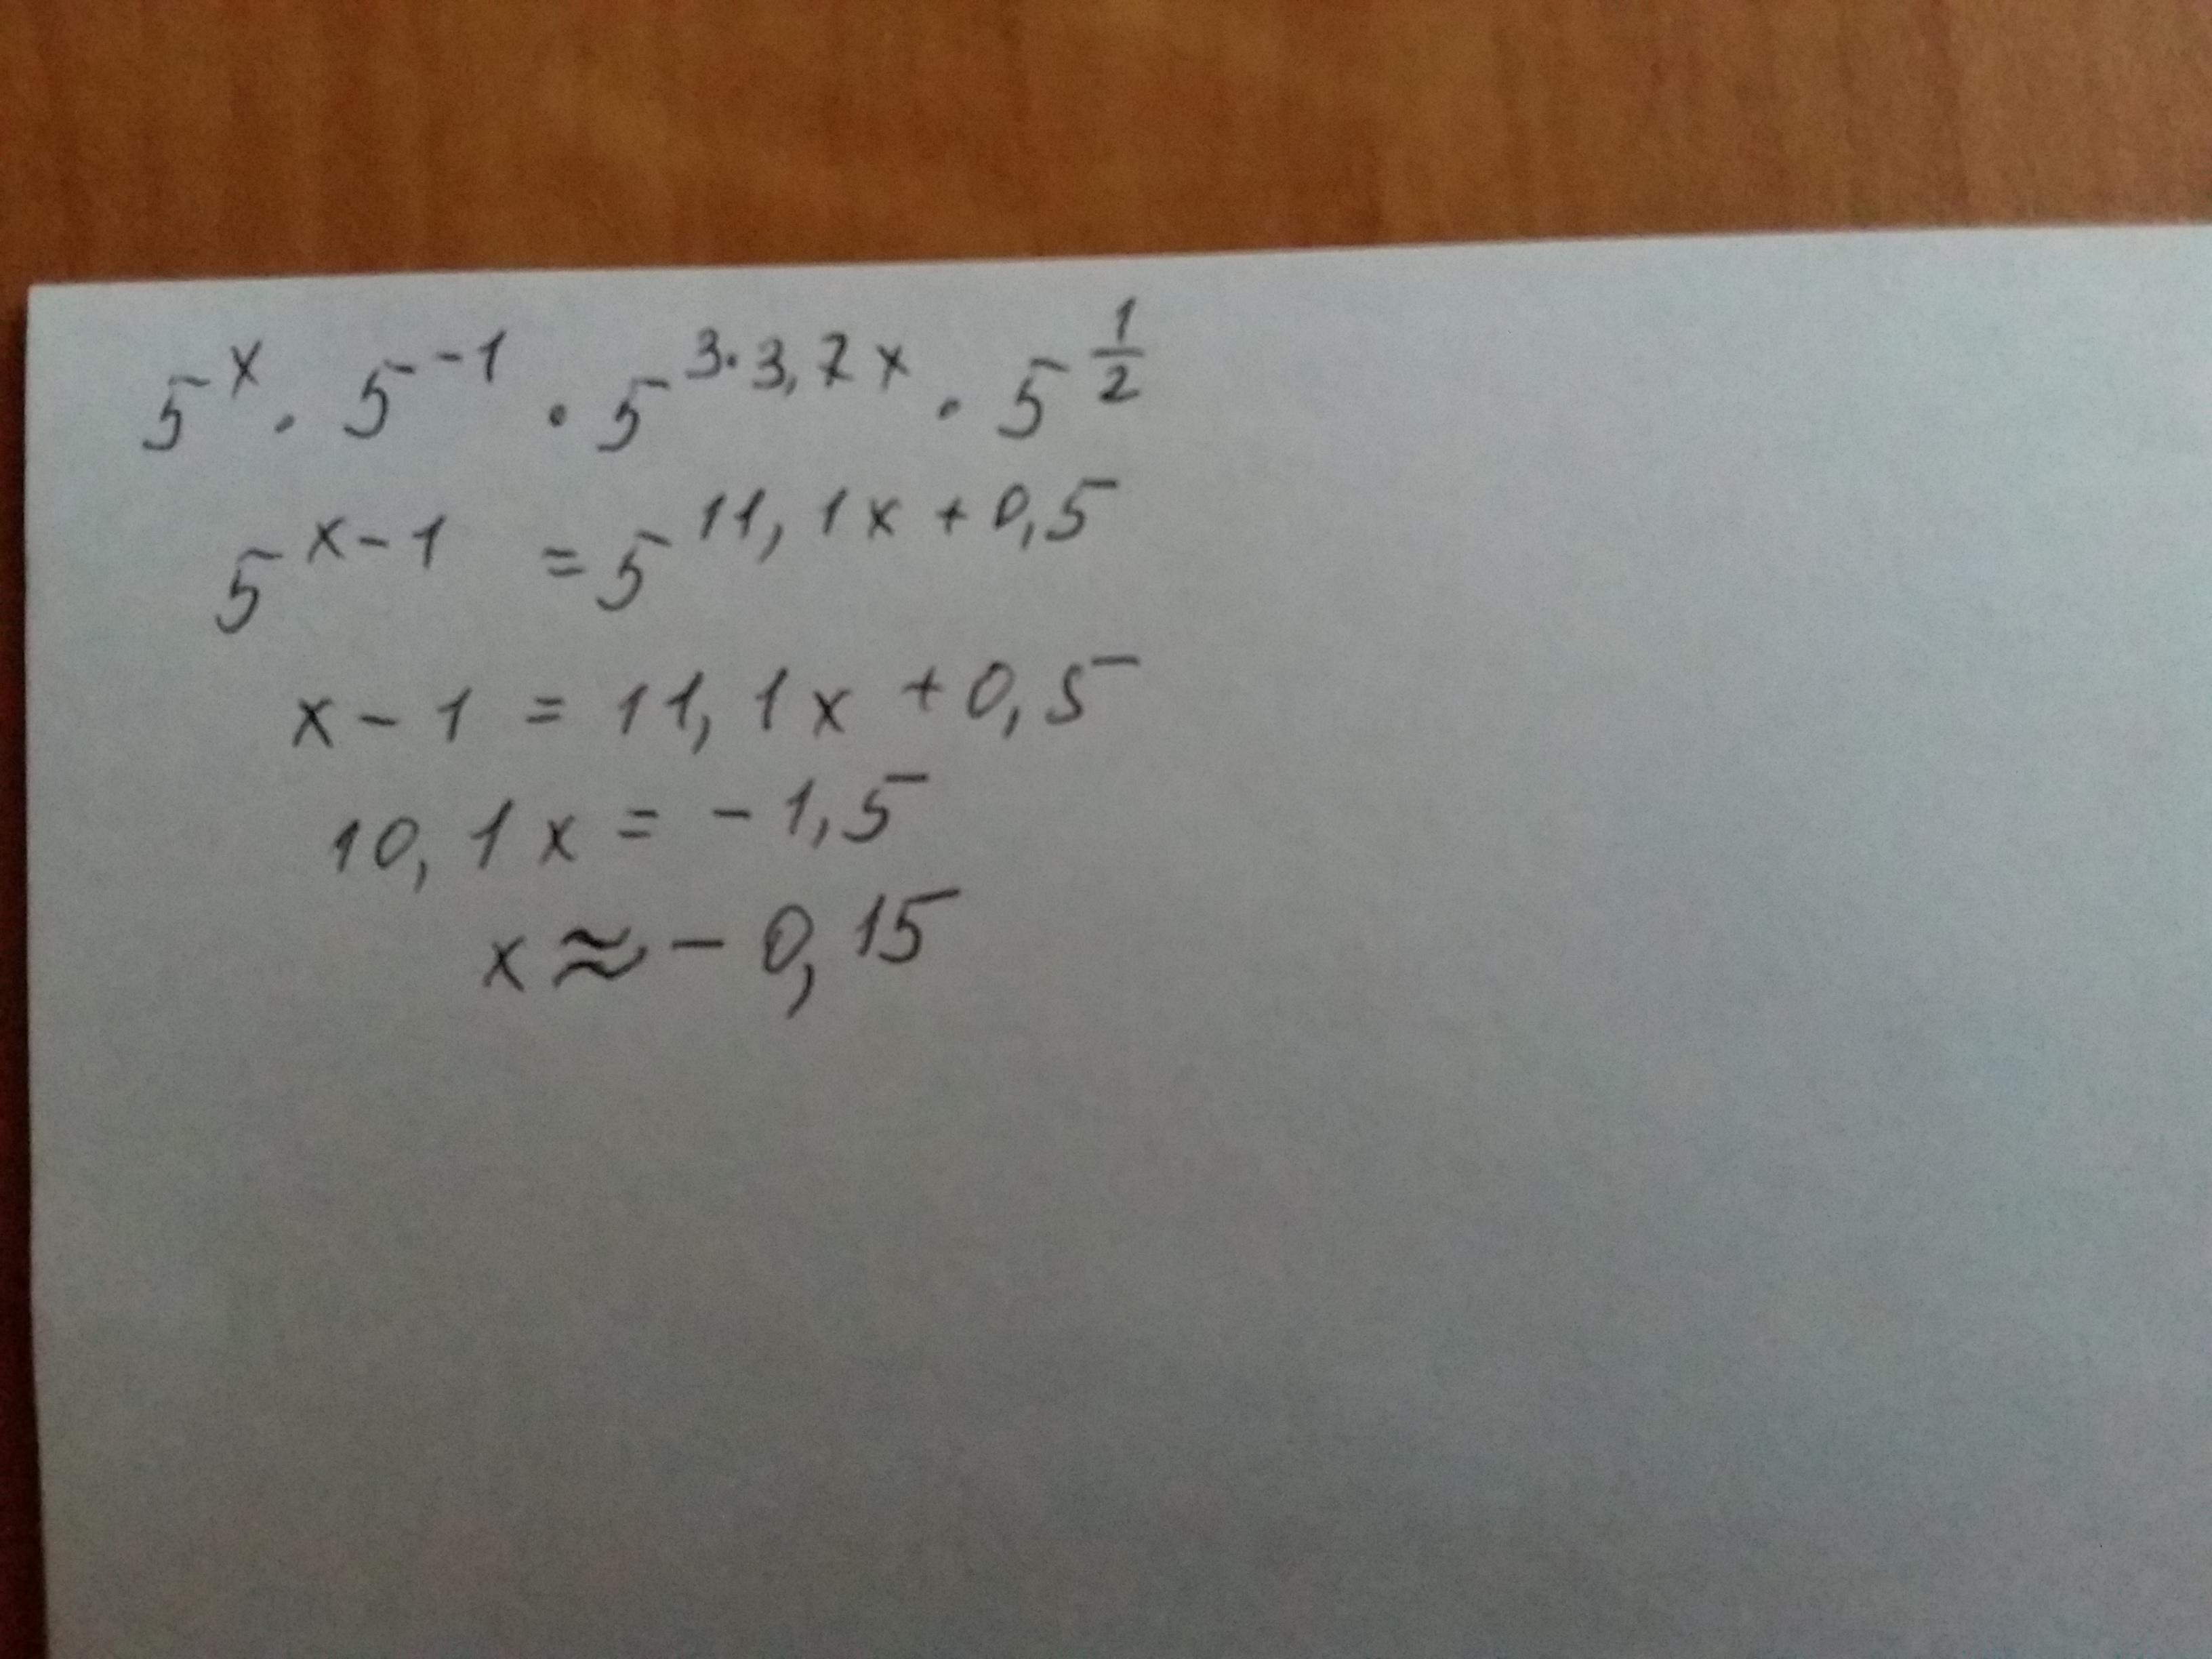 5^x · 5^{-1} · 5^{3·3,7x} · 5^{\frac{1}{2}}
5^{x-1} = 5^{11,1x+0,5}
x - 1 = 11,1x + 0,5
10,1x = -1,5
x ≈ -0,15